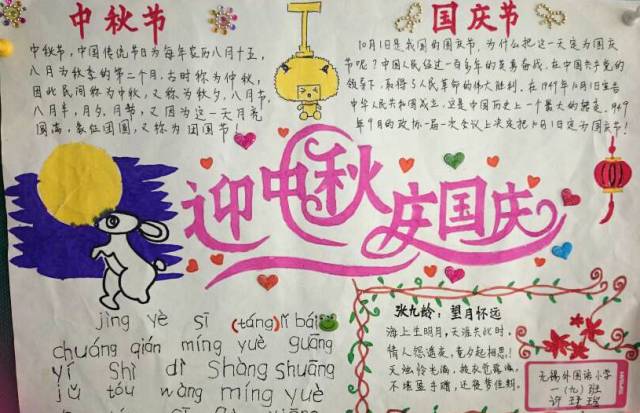 中秋节
中秋节，中国传统节日为每年农历八月十五，
八月为秋季的第二个月，古时称为仲秋，
因此民间称为中秋，又称为秋夕，八月节，
八月半，月夕，月节，又因为这一天月亮
圆满，象征团圆，又称为团圆节！
国庆节
10月1日是我国的国庆节，为什么把这一天定为国庆
节呢？中国人民经过一百多年的英勇奋战，在中国共产党的
领导下，取得了人民革命的伟大胜利，在1949年10月1日宣告
中华人民共和国成立，这是中国历史上一个最大的转变，1949
年9月的政协一届一次会议上决定把10月1日定为国庆节！
迎中秋 庆国庆
jìng yè sī (táng) lǐ bái
chuáng qián míng yuè guāng
yí Shì dì Shàng Shuāng
jǔ tóu wàng míng yuè
张九龄：望月怀远
海上生明月，天涯共此时，
情人怨遥夜，竟夕起相思！
灭烛怜光满，披衣觉露滋，
不堪盈手赠，还寝梦佳期。
无锡外国语小学
一（九）班